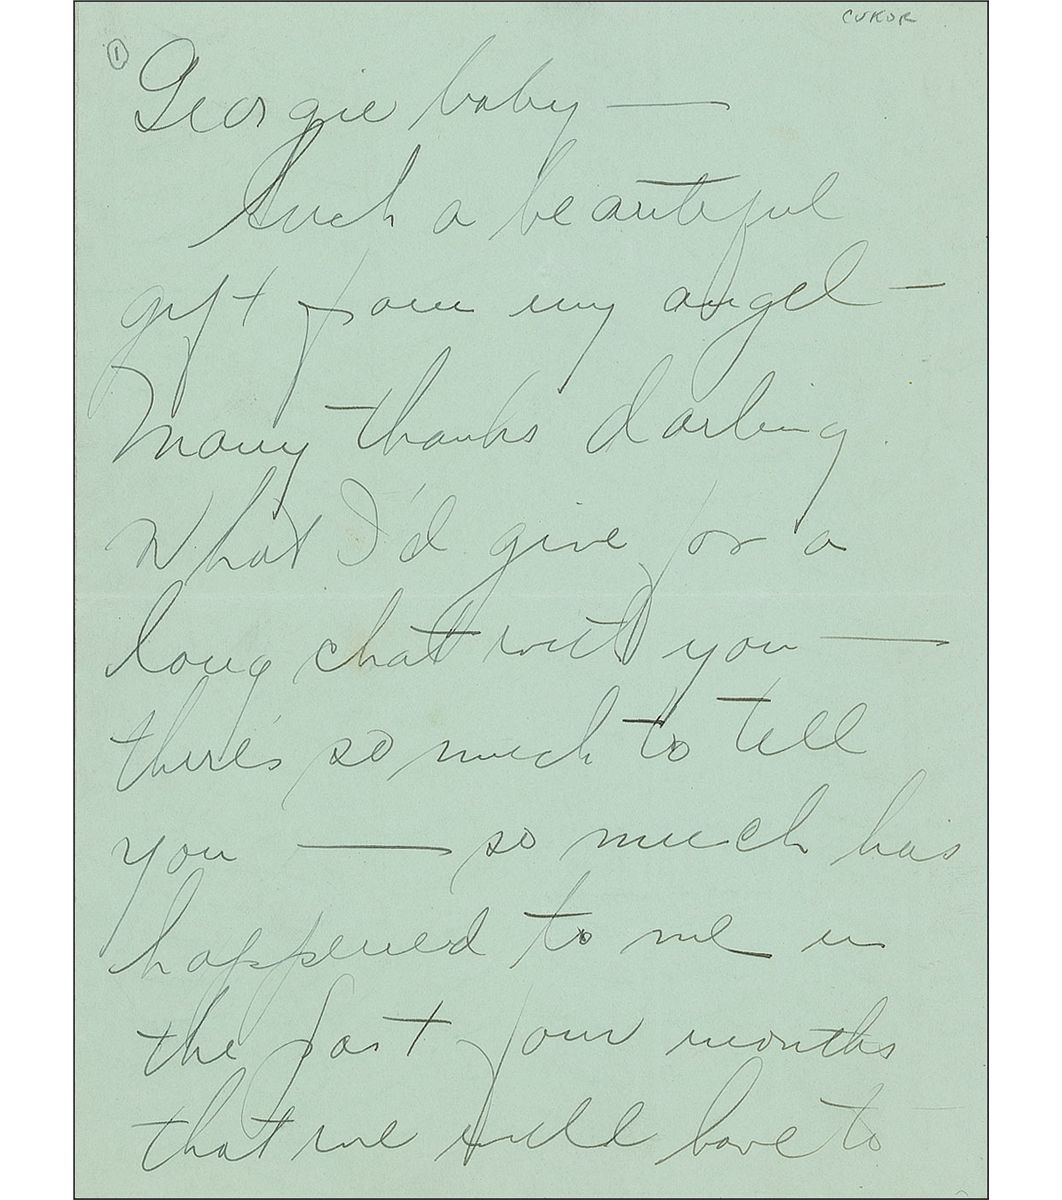 CUKOR
①
Georgie baby —
Such a beautiful
gift from my angel —
Many thanks darling.
What I'd give for a
long chat with you —
there's so much to tell
you — so much has
happened to me in
the past four months
that we will have to